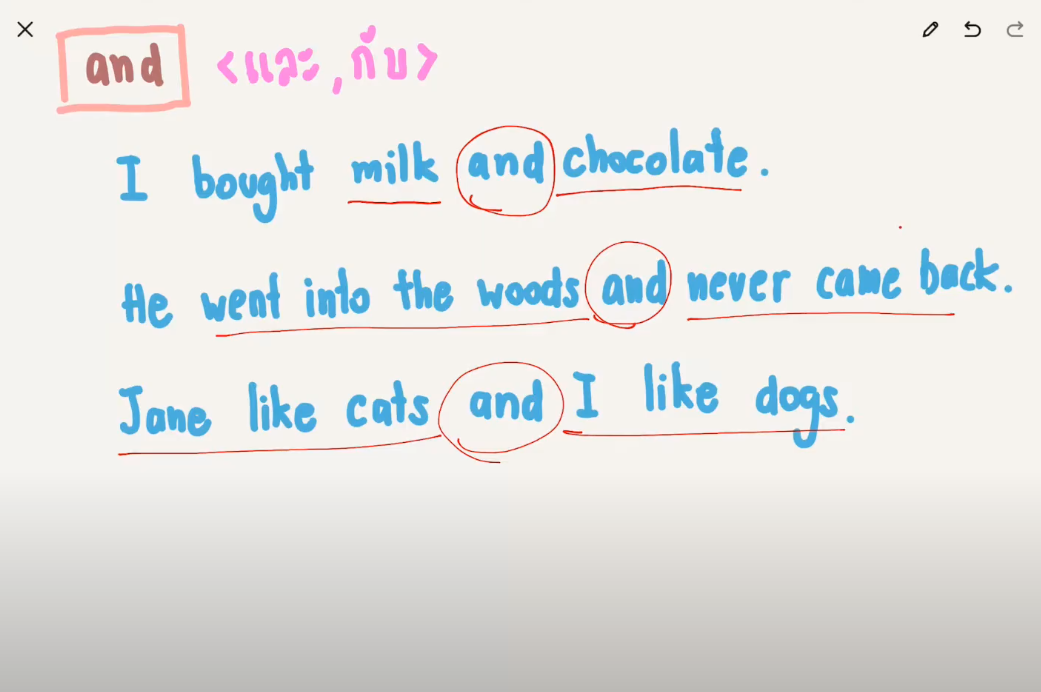 and <และ, กับ>
I bought milk and chocolate.
He went into the woods and never came back.
Jane like cats and I like dogs.